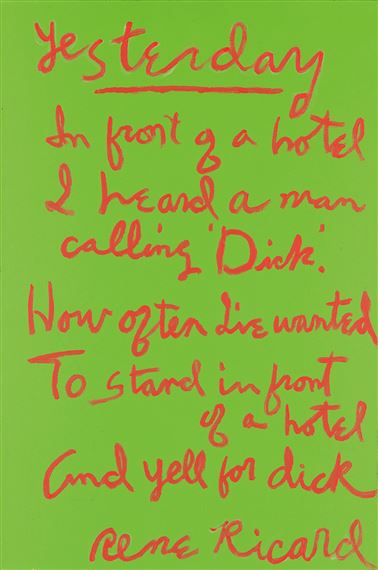 Yesterday
In front of a hotel
I heard a man
calling 'Dick'.
How often I've wanted
To stand in front
of a hotel
and yell for dick
Rene Ricard